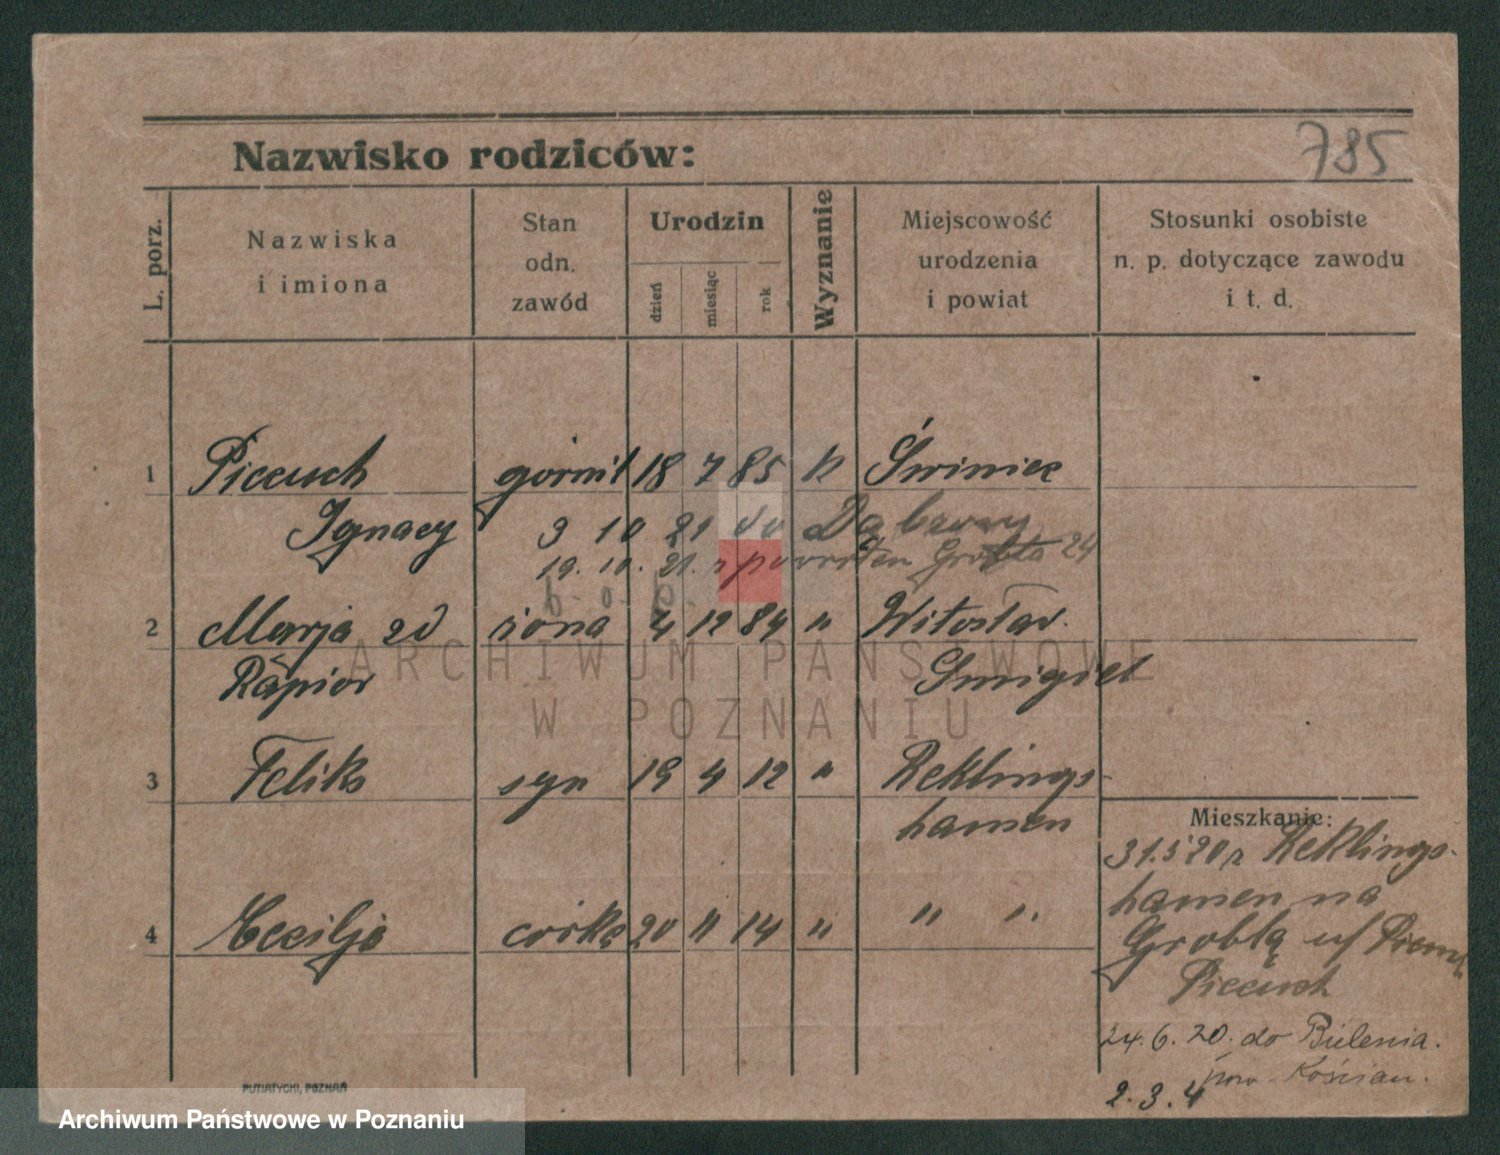 785
Nazwisko rodziców:
L. porz.
Nazwiska
i imiona
Stan
odn.
zawód
Urodzin
dzień
miesiąc
rok
Wyznanie
Miejscowość
urodzenia
i powiat
Stosunki osobiste
n. p. dotyczące zawodu
i t. d.
1 Piecuch górnik 18 7 85 k Świniec
Ignacy 3 10 21 do Dąbrowy
19. 10. 21. z powrotem Grobla 24
b. o. b.
2 Marja zd żona 4 12 84 " Witosław.
Rapior Śmigiel
3 Feliks syn 19 4 12 " Reklings-
hausen
Mieszkanie:
31.5 20 z Reklings-
hausen na
4 Cecilja córka 20 11 14 " " "
Groblą
Piecuch
24. 6. 20. do
pow. Kościan.
2. 3. 4
PUTIATYCKI, POZNAŃ
ARCHIWUM PAŃSTWOWE
W POZNANIU
Archiwum Państwowe w Poznaniu